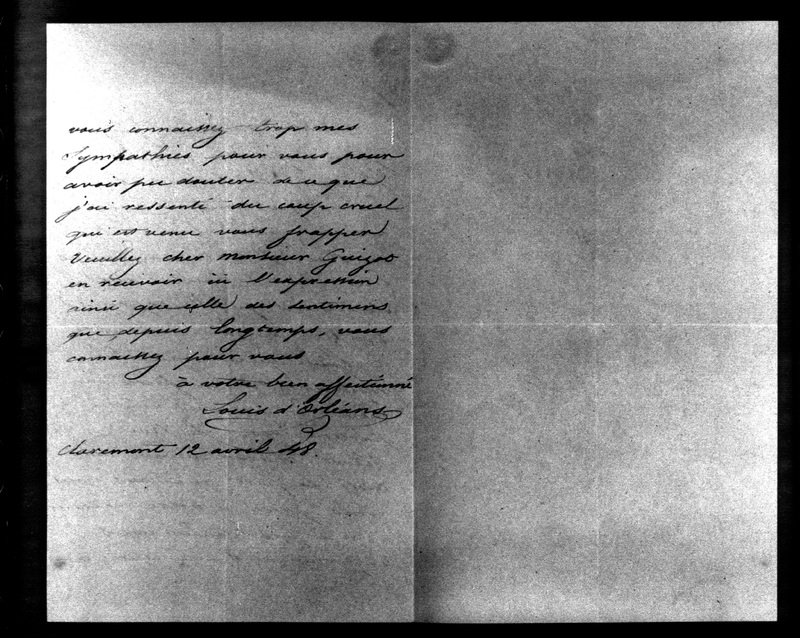 vous connaissez trop mes
sympathies pour vous pour
avoir pu douter de ce que
j'ai ressenti du coup cruel
qui est venu vous frapper
Veuillez cher monsieur Guizot
en recevoir ici l'expression
ainsi que celle des sentimens
que depuis longtemps, vous
connaissez pour vous
à votre bien affectionné
Louis d'Orléans
Claremont 12 avril 48.